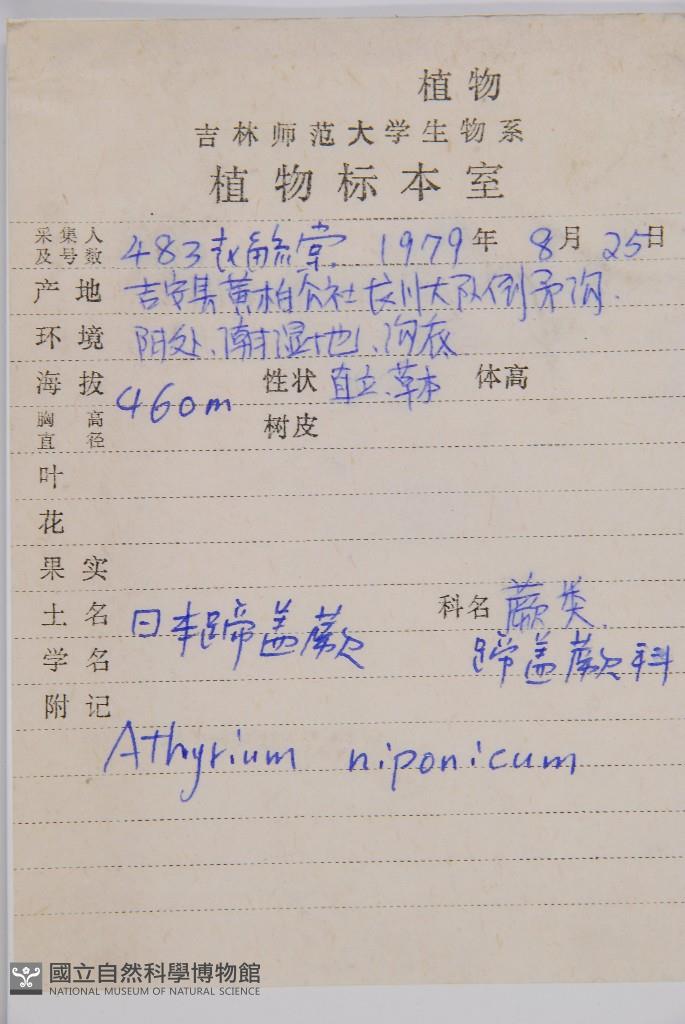 植物
吉林师范大学生物系
植物标本室
采集人及号数 483 赵毓棠 1979年 8月 25日
产地 吉安县黄柏公社长川大队倒木沟.
环境 阳处、潮湿地、沟底
海拔 460m 性状 直立、草本 体高
胸高直径 树皮
叶
花
果实
土名 日本蹄盖蕨 科名 蕨类.
学名 蹄盖蕨科
附记
Athyrium niponicum
國立自然科學博物館
NATIONAL MUSEUM OF NATURAL SCIENCE